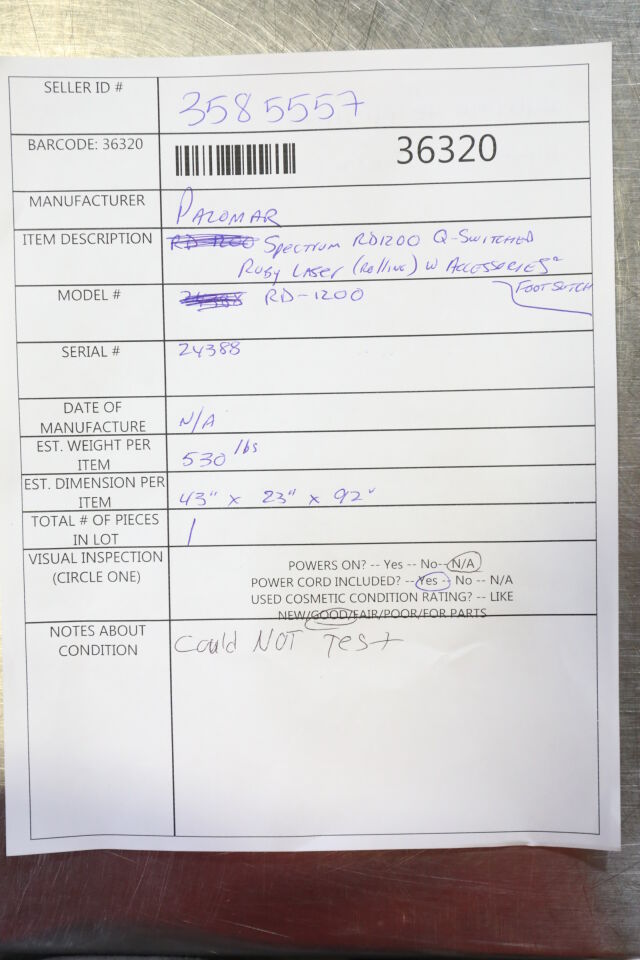 SELLER ID # 3585557
BARCODE: 36320 36320
MANUFACTURER PALOMAR
ITEM DESCRIPTION RD-1200 SPECTRUM RD1200 Q-SWITCHED
RUBY LASER (ROLLING) W ACCESSORIES
FOOT SWTCH
MODEL # 24388 RD-1200
SERIAL # 24388
DATE OF
MANUFACTURE N/A
EST. WEIGHT PER
ITEM 530 lbs
EST. DIMENSION PER
ITEM 43" x 23" x 92"
TOTAL # OF PIECES
IN LOT 1
VISUAL INSPECTION
(CIRCLE ONE)
POWERS ON? -- Yes -- No-- N/A
POWER CORD INCLUDED? -- Yes -- No -- N/A
USED COSMETIC CONDITION RATING? -- LIKE
NEW/GOOD/FAIR/POOR/FOR PARTS
NOTES ABOUT
CONDITION
Could NOT Test